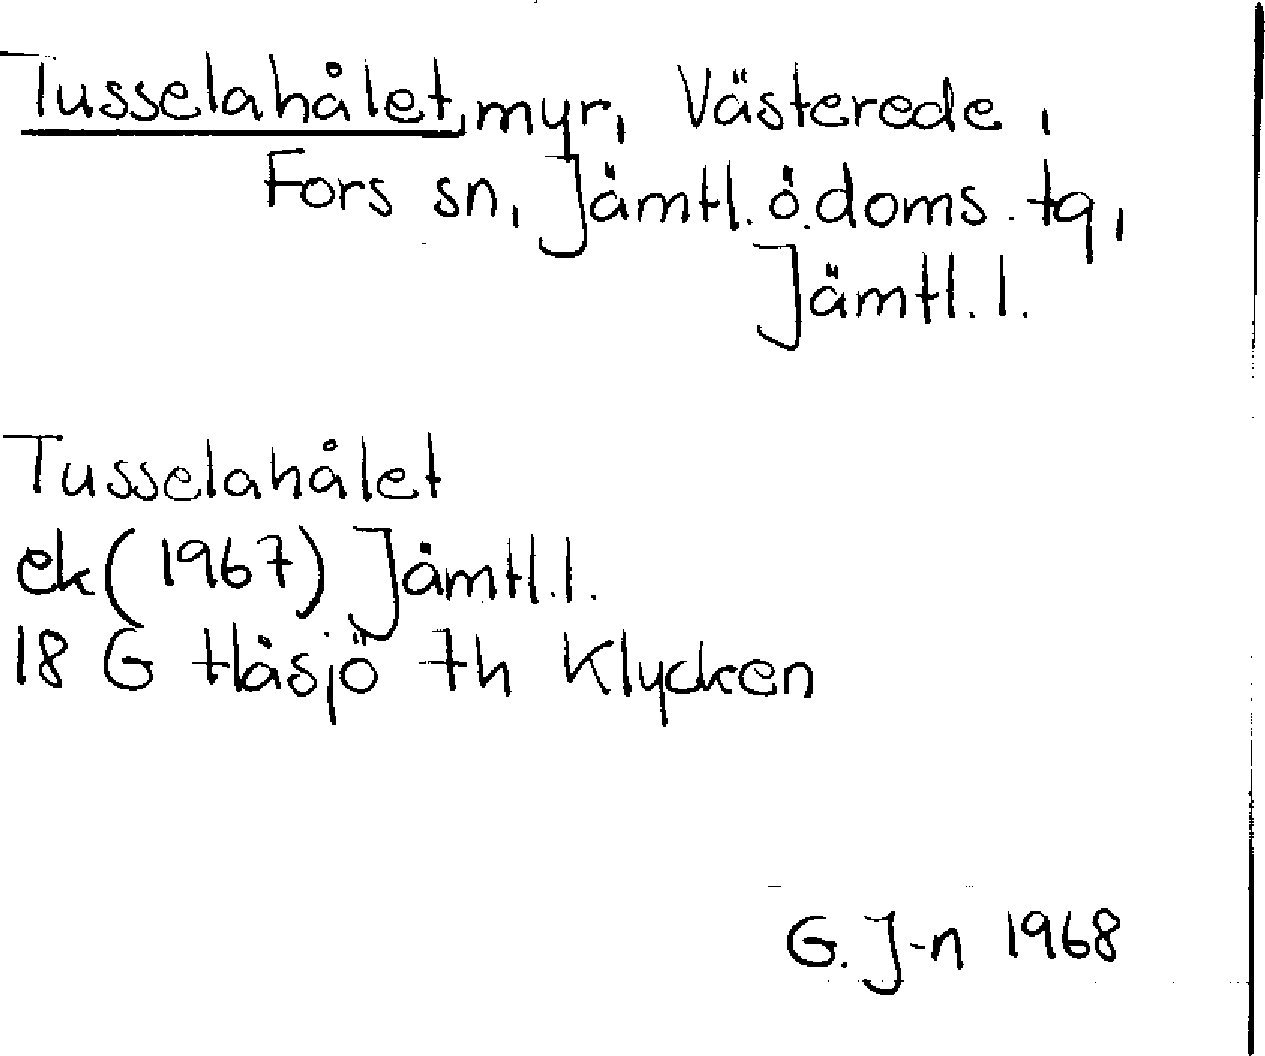 Tusselahålet, myr, Västerede,
Fors sn, Jämtl. ö. doms. tg,
Jämtl. l.
Tusselahålet
ek (1967) Jämtl. l.
18 G Håsjö th Klycken
G. J-n 1968